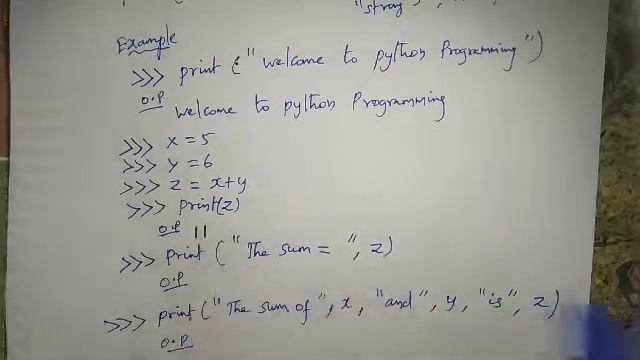 "string"
Example
>>> print ("Welcome to python Programming")
O.P
Welcome to python Programming
>>> x = 5
>>> y = 6
>>> z = x+y
>>> print(z)
O.P 11
>>> print ("The sum = ", z)
O.P
>>> print("The sum of", x, "and", y, "is", z)
O.P